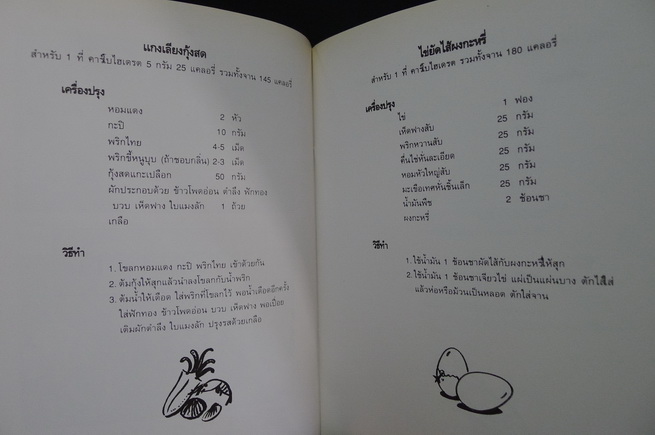 แกงเลียงกุ้งสด
สำหรับ 1 ที่ คาร์โบไฮเดรต 5 กรัม 25 แคลอรี่ รวมทั้งจาน 145 แคลอรี่
เครื่องปรุง
หอมแดง 2 หัว
กะปิ 10 กรัม
พริกไทย 4-5 เม็ด
พริกขี้หนูบุบ (ถ้าชอบกลิ่น) 2-3 เม็ด
กุ้งสดแกะเปลือก 50 กรัม
ผักประกอบด้วย ข้าวโพดอ่อน ตำลึง ฟักทอง
บวบ เห็ดฟาง ใบแมงลัก 1 ถ้วย
เกลือ
วิธีทำ
1. โขลกหอมแดง กะปิ พริกไทย เข้าด้วยกัน
2. ต้มกุ้งให้สุกแล้วนำลงโขลกกับน้ำพริก
3. ต้มน้ำให้เดือด ใส่พริกที่โขลกไว้ พอน้ำเดือดอีกครั้ง
ใส่ฟักทอง ข้าวโพดอ่อน บวบ เห็ดฟาง พอเปื่อย
เติมผักตำลึง ใบแมงลัก ปรุงรสด้วยเกลือ
ไข่ยัดไส้ผงกะหรี่
สำหรับ 1 ที่ คาร์โบไฮเดรต รวมทั้งจาน 180 แคลอรี่
เครื่องปรุง
ไข่ 1 ฟอง
เห็ดฟางสับ 25 กรัม
พริกหวานสับ 25 กรัม
คื่นไช่หั่นละเอียด 25 กรัม
หอมหัวใหญ่สับ 25 กรัม
มะเขือเทศหั่นชิ้นเล็ก 25 กรัม
น้ำมันพืช 2 ช้อนชา
ผงกะหรี่
วิธีทำ
1. ใช้น้ำมัน 1 ช้อนชาผัดไส้กับผงกะหรี่ให้สุก
2. ใช้น้ำมัน 1 ช้อนชาเจียวไข่ แผ่เป็นแผ่นบาง ตักไส้ใส่
แล้วห่อหรือม้วนเป็นหลอด ตักใส่จาน